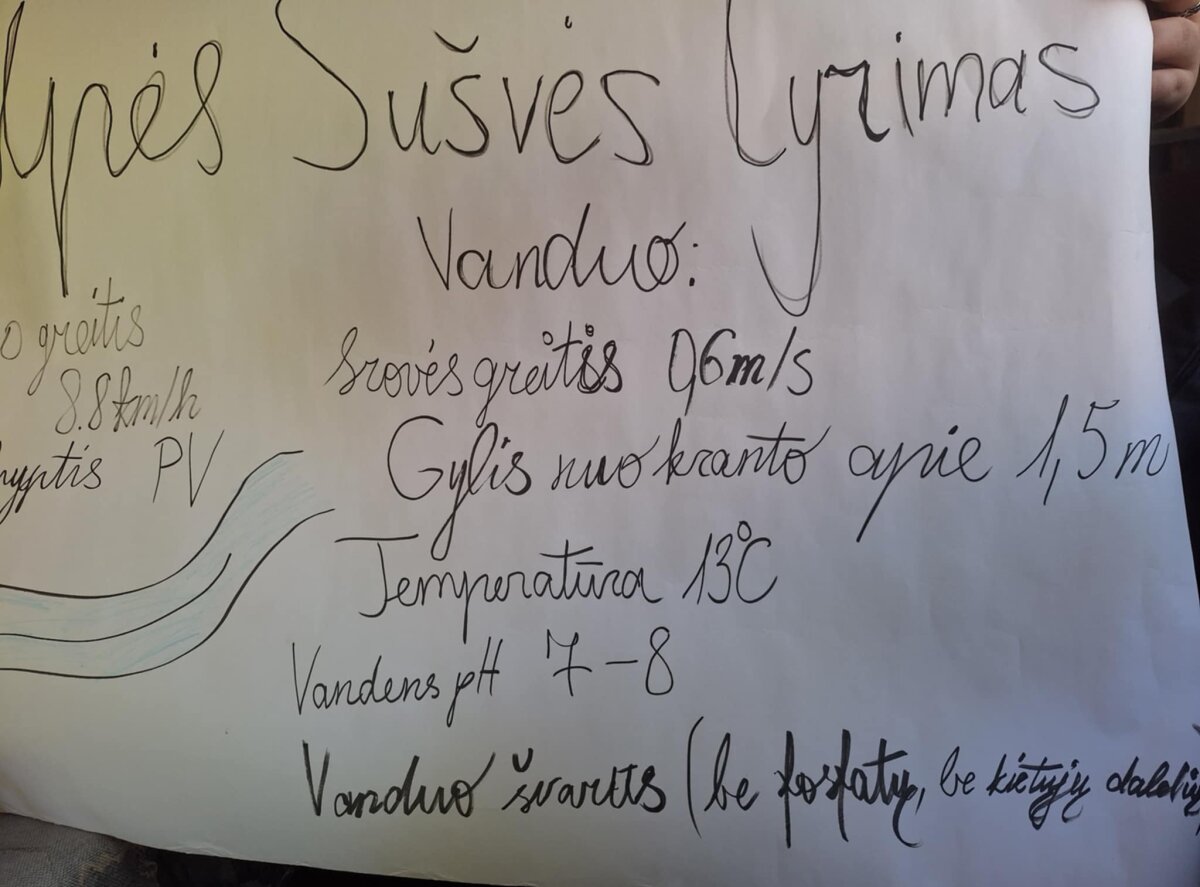 Upės Sušvės tyrimas
Vanduo:
o greitis
8.8 km/h
Srovės greitis 0,6 m/s
kryptis PV
Gylis nuo kranto apie 1,5 m
Temperatūra 13°C
Vandens pH 7-8
Vanduo švarus (be fosfatų, be kietųjų dalelių)